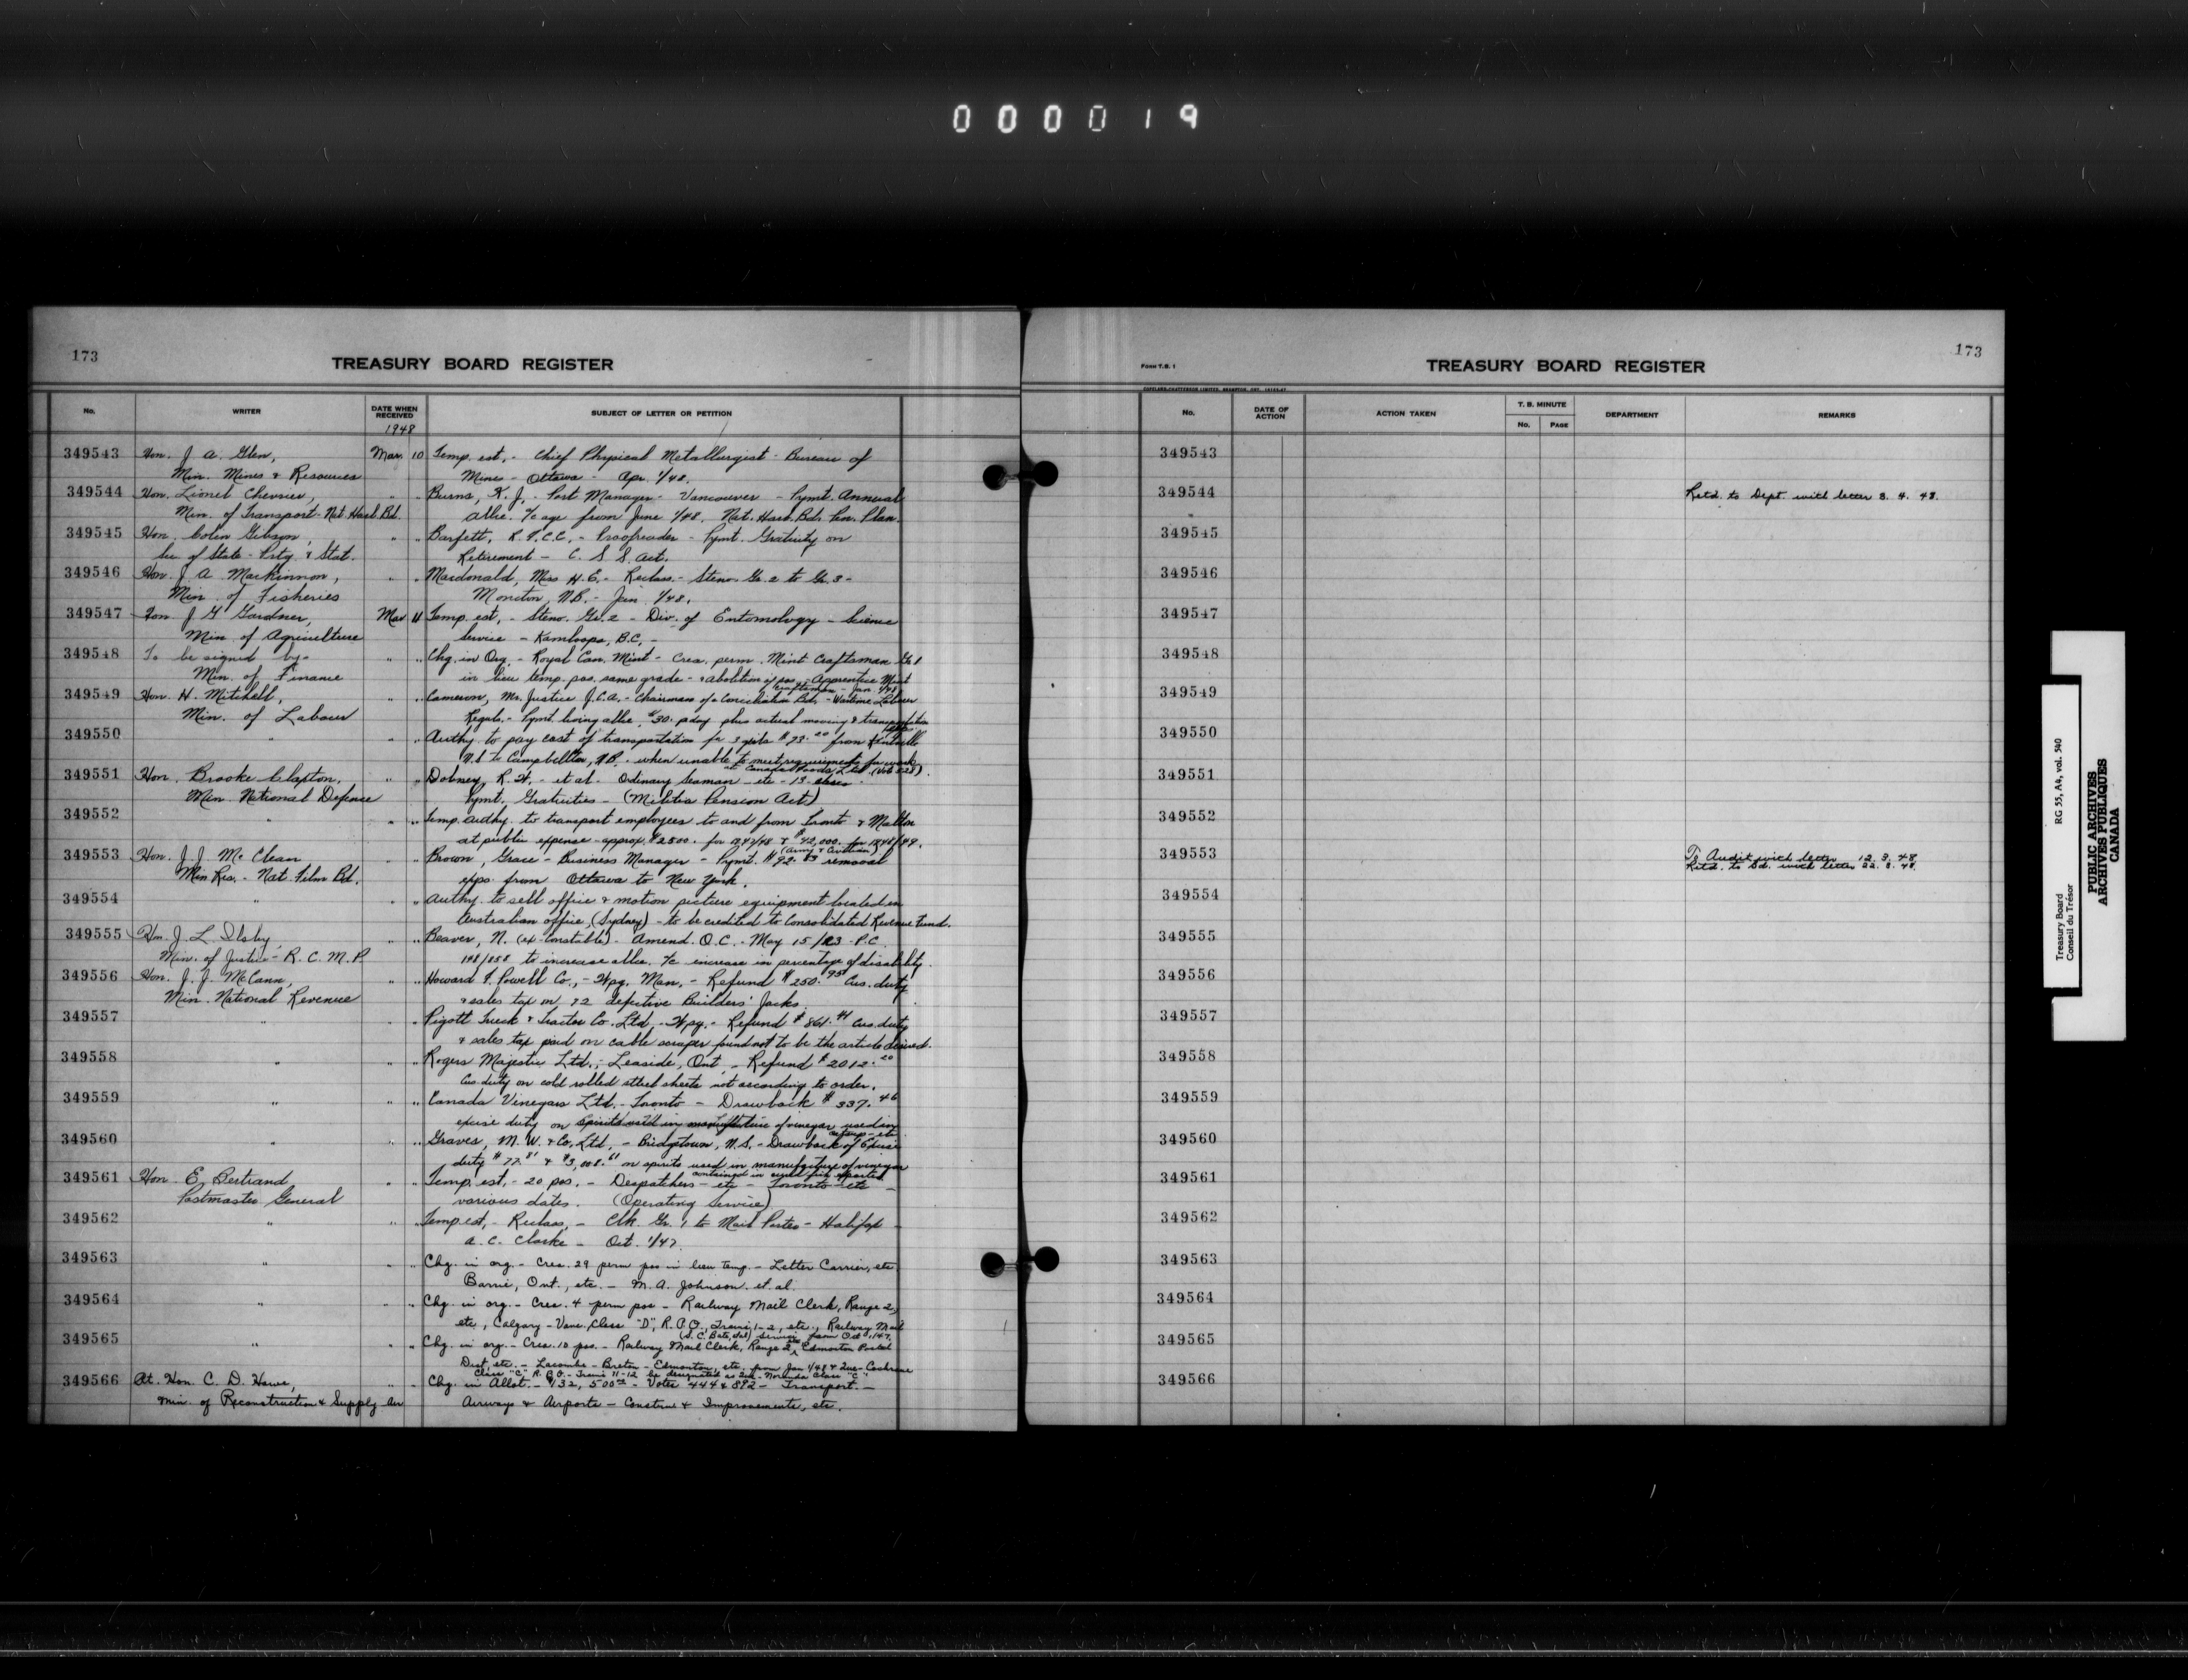 000019
173
TREASURY BOARD REGISTER
No. WRITER DATE WHEN RECEIVED SUBJECT OF LETTER OR PETITION
1948
349543 Hon. J. A. Glen, Mar. 10 Temp. est. - Chief Physical Metallurgist - Bureau of
Min. Mines & Resources Mines - Ottawa - Apr. 1/48.
349544 Hon. Lionel Chevrier, " " Burns, K. J. - Port Manager - Vancouver - Pymt. Annual
Min. of Transport - Nat Harb. Bd. allce. % age from June 1/48. Nat. Harb. Bd. Pen. Plan.
349545 Hon. Colin Gibson, " " Barfett, R. P.C.C. - Proofreader - Pymt. Gratuity on
Sec of State - Prtg. & Stat. Retirement - C. S. S. Act.
349546 Hon. J. A. MacKinnon, " " Macdonald, Miss H. E. - Reclass. - Steno. Gr. 2 to Gr. 3 -
Min. of Fisheries Moncton, N.B. - Jan. 1/48.
349547 Hon J G Gardner, Mar 11 Temp. est. - Steno. Gr. 2 - Div. of Entomology - Science
Min. of Agriculture Service - Kamloops, B.C. -
349548 To be signed by - " " Chg. in Org. - Royal Can. Mint - Crea. perm. Mint Craftsman Gr. 1
Min. of Finance in lieu temp. pos. same grade - & abolition of pos. - Apprentice Mint
Craftsman - Jan. 1/48
349549 Hon. H. Mitchell, " " Cameron, Mr. Justice J.C.A. - Chairman of a Conciliation Bd. - Wartime Labour
Min. of Labour Regals. - Pymt. living allce. $30. p.day plus actual moving & transportation
349550 " " Authy. to pay cost of transportation for 3 girls $73.20 from Kentville
N.S. to Campbellton, N.B. - when unable to meet requirements for work
at Canada Foods Ltd. (Vote 528).
349551 Hon. Brooke Claxton, " " Dobney, R. H. - et al. Ordinary Seaman - etc - 13
Min. National Defence Pymt. Gratuities - (Militia Pension Act)
349552 " " " Temp. authy. to transport employees to and from Toronto & Malton
at public expense - approx. $2500. for 1947/48 & $42,000. for 1948/49.
(Army & Civilian)
349553 Hon. J. J. McClean " " Brown, Grace - Business Manager - Pymt. $92.83 removal
Min Res. - Nat. Film Bd. exps. from Ottawa to New York.
349554 " " " Authy. to sell office & motion picture equipment located in
Australian office, (Sydney) - to be credited to Consolidated Revenue Fund.
349555 Hon. J. L. Ilsley " " Beaver, N. (ex-Constable) - Amend. O.C. - May 15/23 - P.C.
Min. of Justice - R. C. M. P 148/858 to increase allce. % increase in percentage of disability.
349556 Hon. J. J. McCann, " " Howard F. Powell Co., - Wpg. Man. - Refund $250.95 Cus. duty
Min. National Revenue & sales tax on 72 defective Builders' Jacks.
349557 " " " Pigott Truck & Tractor Co. Ltd. - Wpg. - Refund $861.41 Cus. duty
& sales tax paid on cable scraper found not to be the article desired.
349558 " " " Rogers Majestic Ltd., - Leaside, Ont. - Refund $2012.20
Cus. duty on cold rolled steel sheets not according to order.
349559 " " " Canada Vinegars Ltd. - Toronto - Drawback $337.46
excise duty on spirits used in manufacture of vinegar used in
349560 " " " Graves, M. W. & Co. Ltd. - Bridgetown, N.S. - Drawback of Excise
duty $77.81 & $3,008.61 on spirits used in manufacture of vinegar
349561 Hon E. Bertrand " Temp. est. - 20 pos. - Despatchers - etc - Toronto - etc -
Postmaster General various dates. (Operating Service)
349562 " " " Temp est. - Reclass. - Clk. Gr. 1 to Mail Porter - Halifax -
A. C. Clarke - Oct. 1/47.
349563 " " " Chg. in org. - Crea. 29 perm pos in lieu temp. - Letter Carrier, etc
Barrie, Ont., etc. - M. A. Johnson. et al.
349564 " " " Chg. in org. - Crea. 4 perm pos - Railway Mail Clerk, Range 2,
etc, Calgary - Vanc. Class "D", R.P.O., Trains 1-2, etc., Railway Mail
Service from Oct 1/47.
349565 " " " Chg. in org. - Crea. 10 pos. - Railway Mail Clerk, Range 2, Edmonton Postal
Dist, etc. - Lacombe - Breton - Edmonton, etc. from Jan 1/48 & Que - Cochrane
Class "C" R.P.O. - Trains 11-12 be designated as Que - Noranda Class "C"
349566 At. Hon. C. D. Howe, " Chg. in Allot. - $132,500.00 - Votes 444 & 892 - Transport. -
Min. of Reconstruction & Supply - Air Airways & Airports - Constrn & Improvements, etc.
FORM T.B. 1
TREASURY BOARD REGISTER
173
No. DATE OF ACTION ACTION TAKEN T. B. MINUTE No. PAGE DEPARTMENT REMARKS
349543
349544 Retd. to Dept. with letter 3. 4. 48.
349545
349546
349547
349548
349549
349550
349551
349552
349553 To Audit with letter 12. 3. 48
Retd. to Bd. with letter 22. 3. 48.
349554
349555
349556
349557
349558
349559
349560
349561
349562
349563
349564
349565
349566
Treasury Board RG 55, A4, vol. 540
Conseil du Trésor
PUBLIC ARCHIVES
ARCHIVES PUBLIQUES
CANADA